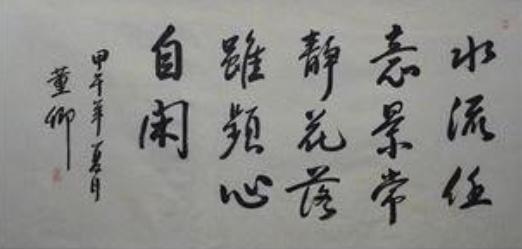 水流任
意景常
静花落
雖頻心
自闲
甲午年夏月
董卿